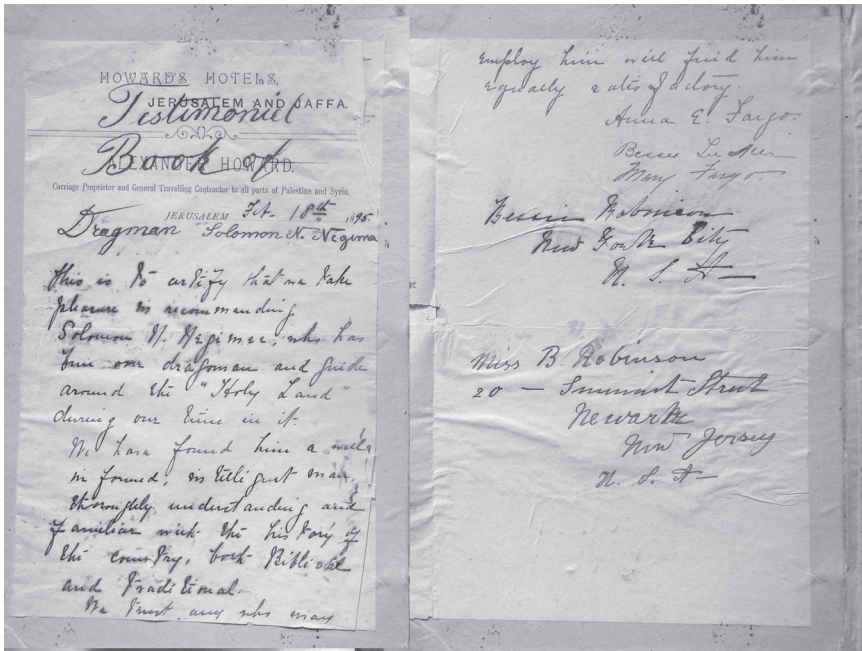 HOWARD'S HOTELS,
JERUSALEM AND JAFFA.
Testimoniel
Book of
ALEXANDER HOWARD.
Carriage Proprietor and General Travelling Contractor to all parts of Palestine and Syria.
JERUSALEM Feb. 18th 1895.
Dragman Solomon N. Negima
This is to certify that we take
pleasure in recommending
Solomon N. Negima, who has
been our dragoman and guide
around the "Holy Land"
during our time in it.
We have found him a well
informed, intelligent man,
thoroughly understanding and
familiar with the history of
the country, both Biblical
and traditional.
We trust any who may
employ him will find him
equally satisfactory.
Anna E. Fargo.
Bessie
Mary Fargo
Bessie Robinson
New York City
U. S. A
Miss B. Robinson
20 — Summit Street
Newark
New Jersey
U. S. A